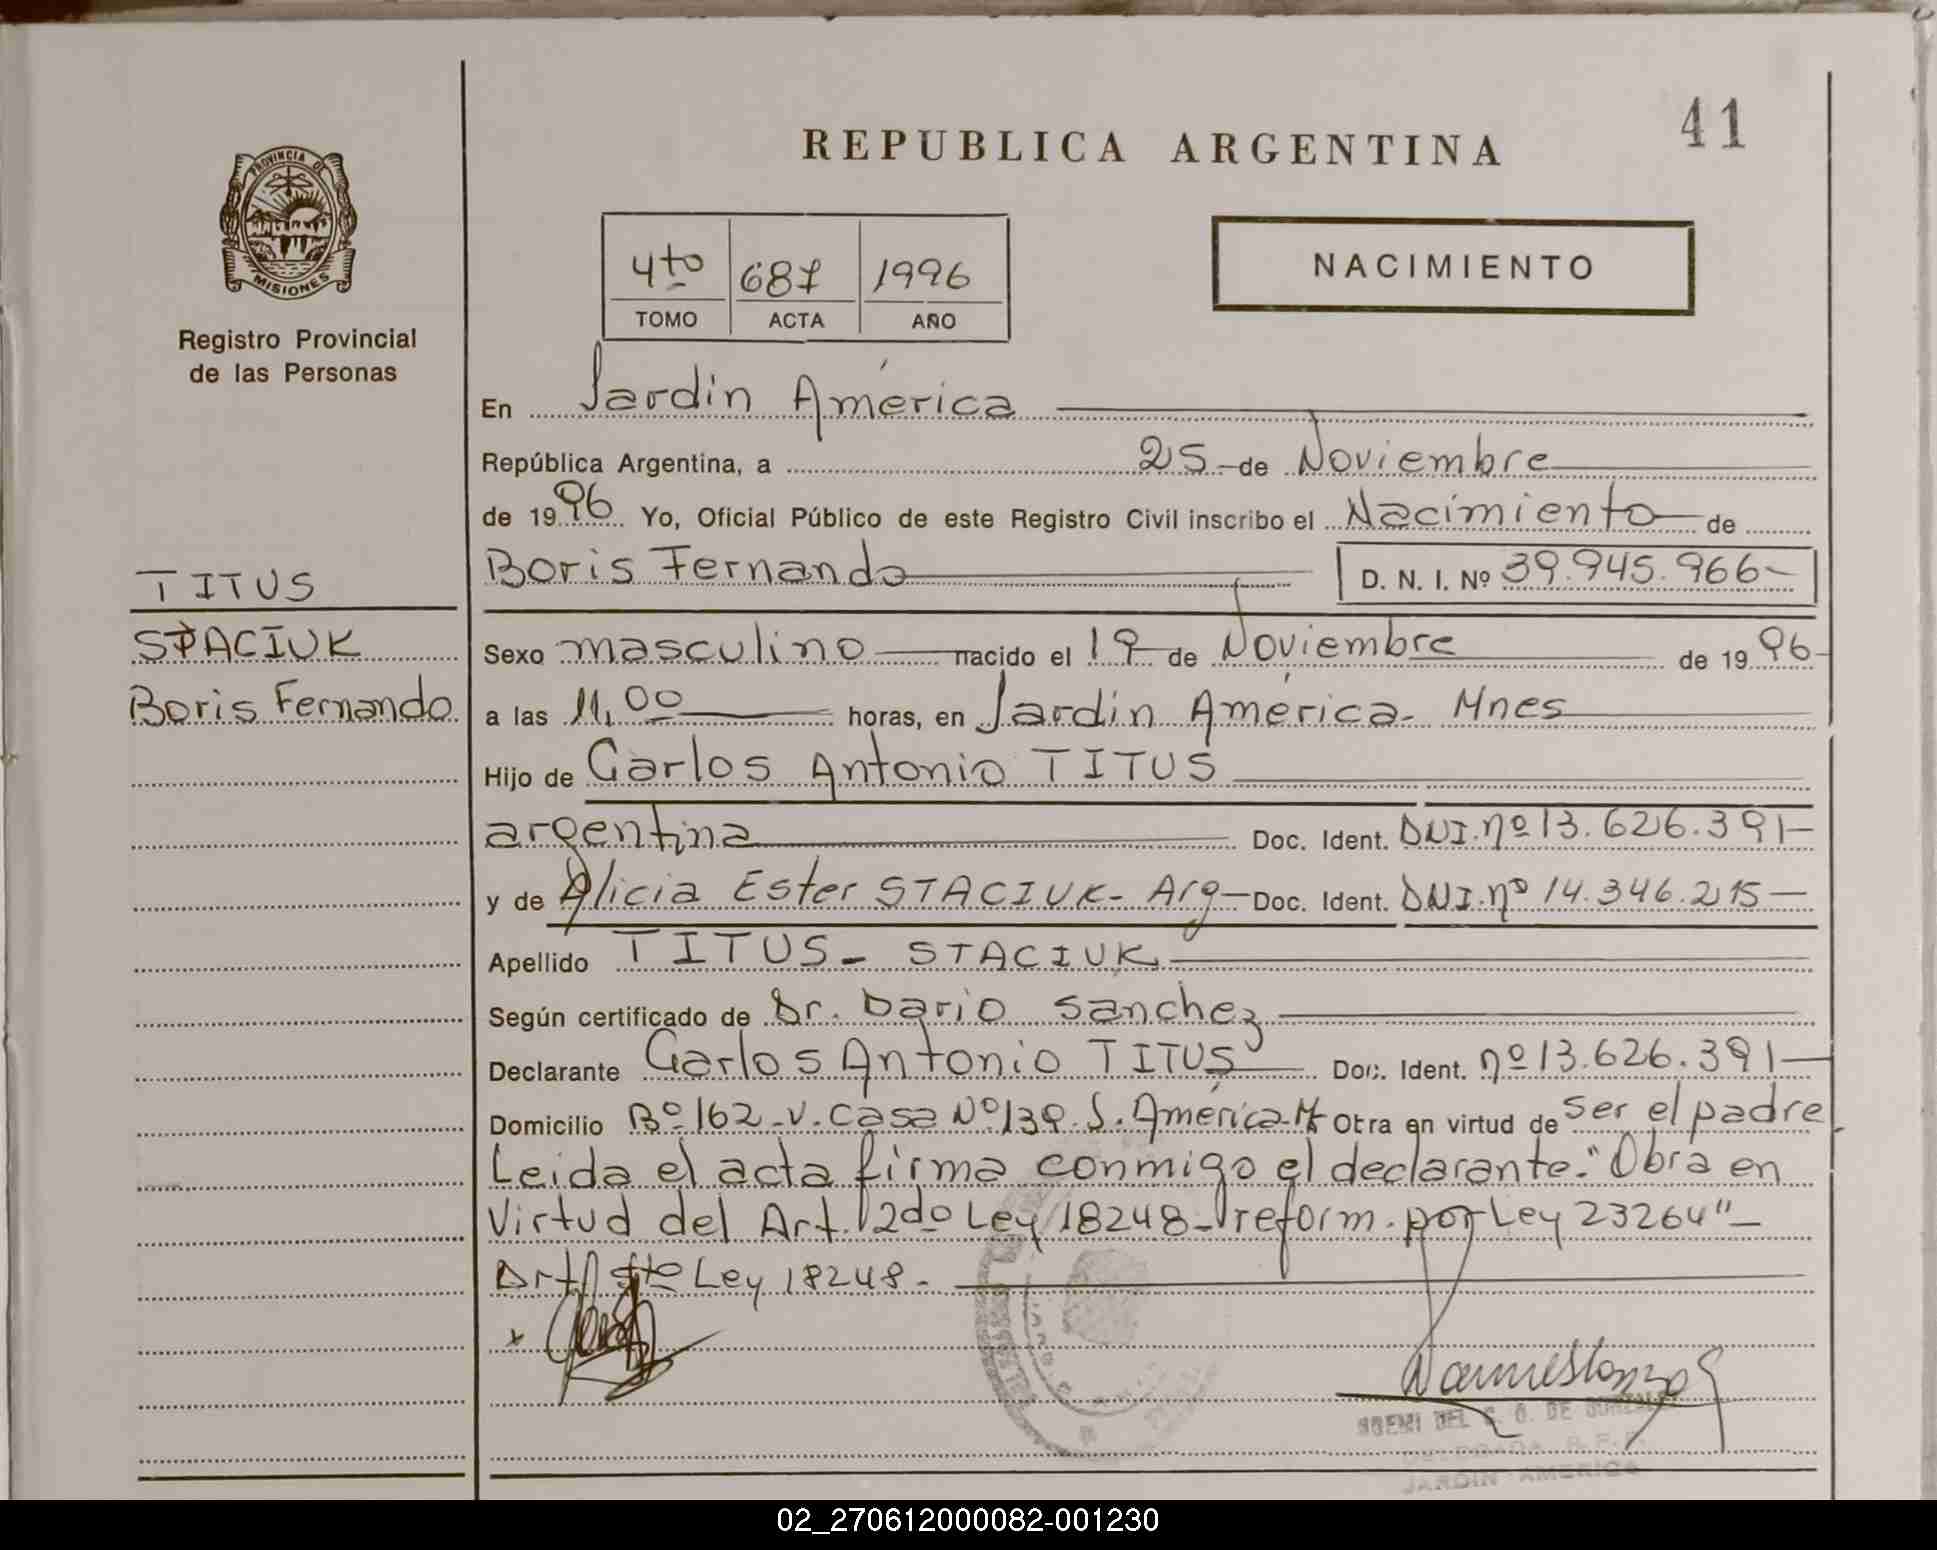 41
REPUBLICA ARGENTINA
PROVINCIA DE
MISIONES
Registro Provincial
de las Personas
4to 687 1996
TOMO ACTA AÑO
NACIMIENTO
En Jardín América
República Argentina, a 25 de Noviembre
de 1996 Yo, Oficial Público de este Registro Civil inscribo el Nacimiento de
Boris Fernando D. N. I. Nº 39.945.966-
TITUS
STACIUK
Boris Fernando
Sexo masculino nacido el 19 de Noviembre de 1996
a las 11,00 horas, en Jardín América - Mnes
Hijo de Carlos Antonio TITUS
argentina Doc. Ident. DNI. nº 13.626.391-
y de Alicia Ester STACIUK - Arg - Doc. Ident. DNI. nº 14.346.215-
Apellido TITUS - STACIUK
Según certificado de Dr. Dario Sanchez
Declarante Carlos Antonio TITUS Doc. Ident. nº 13.626.391-
Domicilio Bº 162 - V. Casa Nº 139. J. América - M Otra en virtud de ser el padre
Leida el acta firma conmigo el declarante. "Obra en
Virtud del Art. 2do Ley 18248 - reform. por Ley 23264" -
Ley 18248 -
DEL C. G. DE GONZALEZ
DELEGADA R. P. P.
JARDIN AMERICA
02_270612000082-001230